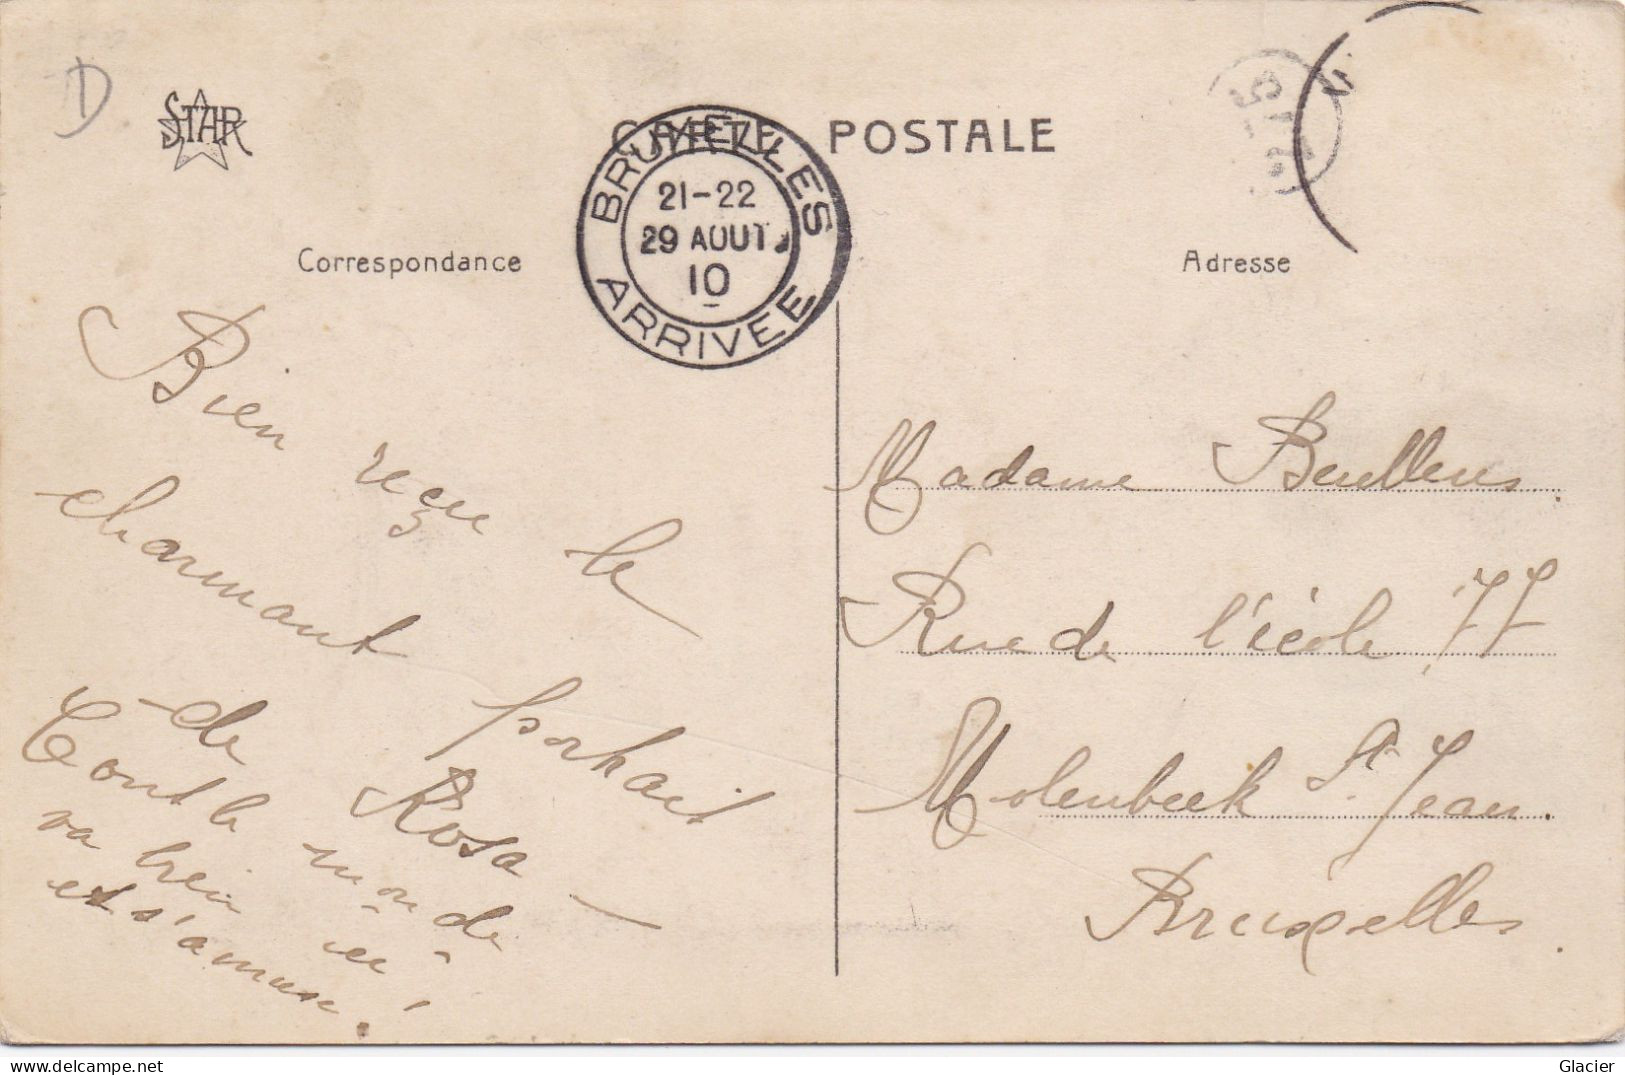 D
STAR
CARTE POSTALE
BRUXELLES
21-22
29 AOUT
10
ARRIVEE
Correspondance
Bien reçu le
charmant portrait
de Rosa –
Tout le monde
va bien ici
et s'amuse!
Adresse
Madame Beullens.
Rue de l'école 77
Molenbeek St. Jean.
Bruxelles.
Glacier